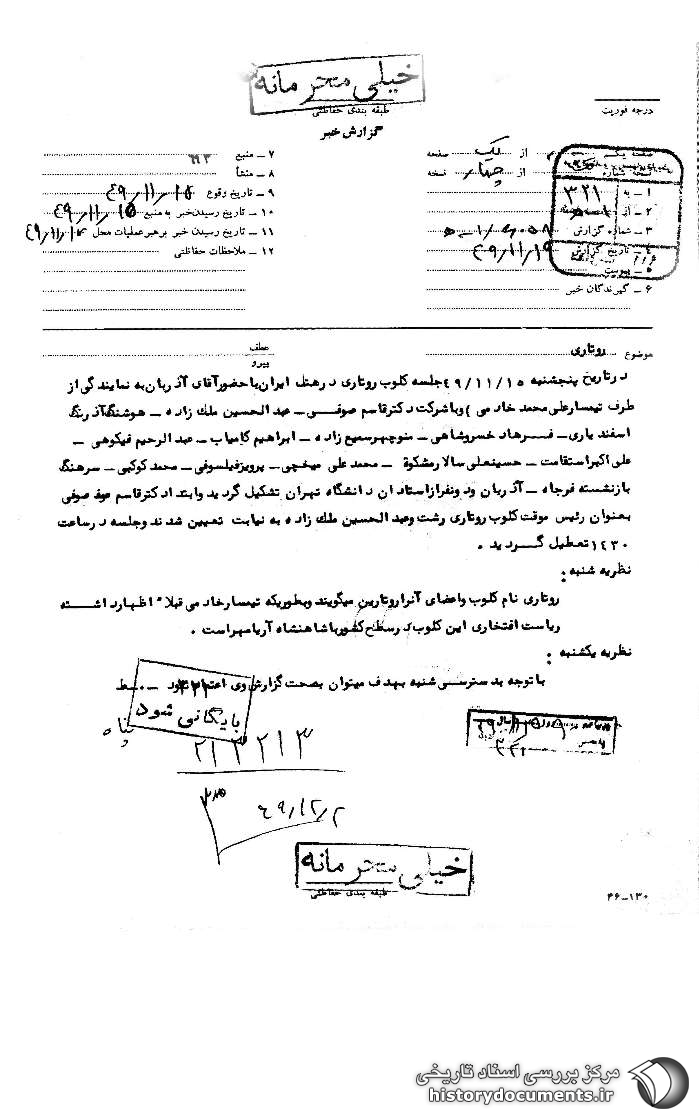 خیلی محرمانه
طبقه بندی حفاظتی
گزارش خبر
درجه فوریت
صفحه یکم از یک صفحه
نسخه شماره از چهار نسخه
۱ ـ به ۳۲۱
۲ ـ از
۳ ـ شماره گزارش
۴ ـ تاریخ گزارش ۴۹/۱۱/۱۹
۵ ـ پیوست
۶ ـ گیرندگان خبر
۷ ـ منبع
۸ ـ منشأ
۹ ـ تاریخ وقوع ۴۹/۱۱/۱۵
۱۰ ـ تاریخ رسیدن خبر به منبع ۴۹/۱۱/۱۵
۱۱ ـ تاریخ رسیدن خبر برهبر عملیات محل
۱۲ ـ ملاحظات حفاظتی
موضوع روتاری
عطف
پیرو
در تاریخ پنجشنبه ۴۹/۱۱/۱۵ جلسه کلوب روتاری در هتل ایران با حضور آقای آذربان به نمایندگی از
طرف تیمسار علی محمد خادمی) و با شرکت دکتر قاسم صوفی ـ عبدالحسین ملک زاده ـ هوشنگ آذرنگ
اسفندیاری ـ فرهاد خسروشاهی ـ منوچهر سمیع زاده ـ ابراهیم کامیاب ـ عبدالرحیم فیکوهی ـ
علی اکبر استقامت ـ حسینعلی سالار مشکوة ـ محمد علی میخچی ـ پرویز فیلسوفی ـ محمد کوکبی ـ سرهنگ
بازنشسته فرجاه ـ آذربان و دو نفر از استادان دانشگاه تهران تشکیل گردید و ابتدا دکتر قاسم صوفی
بعنوان رئیس موقت کلوب روتاری رشت و عبدالحسین ملک زاده به نیابت تعیین شدند و جلسه در ساعت
۱۴۳۰ تعطیل گردید .
نظریه شنبه :
روتاری نام کلوب و اعضای آنرا روتارین میگویند و بطوریکه تیمسار خادمی قبلا" اظهار داشته
ریاست افتخاری این کلوب در سطح کشور با شاهنشاه آریامهر است .
نظریه یکشنبه :
با توجه به دسترسی شنبه بهدف میتوان بصحت گزارش وی اعتماد نمود
۳۲۲
بایگانی شود
۲۱۳۲۱۳
۴۹/۱۲/۲
خیلی محرمانه
طبقه بندی حفاظتی
۴۶-۱۳۰
مرکز بررسی اسناد تاریخی
historydocuments.ir